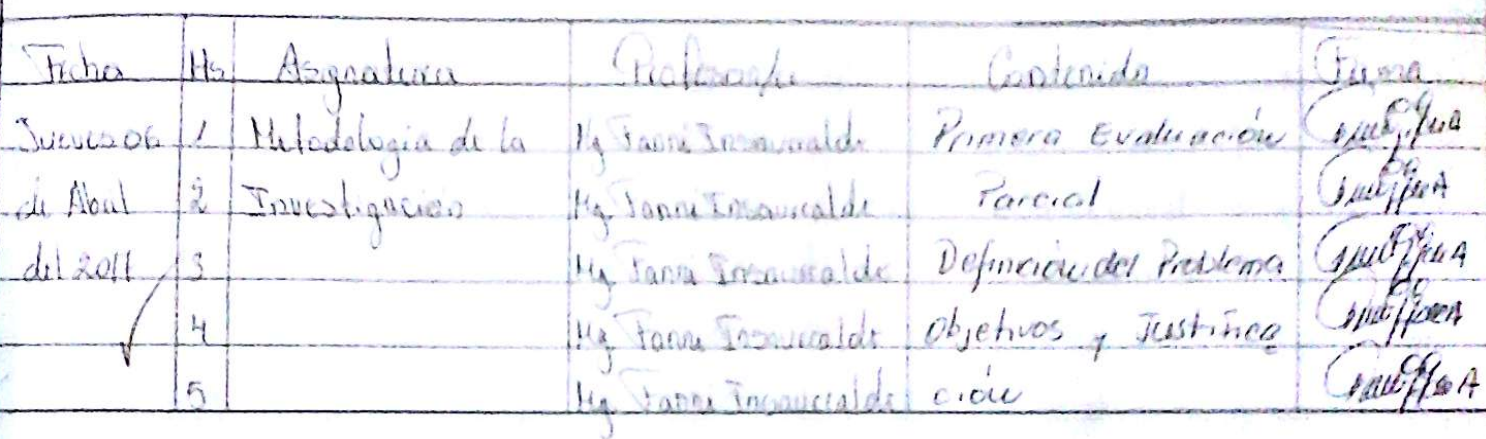 Fecha Hs Asignatura Profesor/a Contenido Firma
Jueves 06 1 Metodologia de la Mg Fanni Insaurralde Primera Evaluación
de Abril 2 Investigacion Mg Fanni Insaurralde Parcial
del 2017 3 Mg Fanni Insaurralde Definición del Problema
4 Mg Fanni Insaurralde Objetivos y Justifica
5 Mg Fanni Insaurralde ción